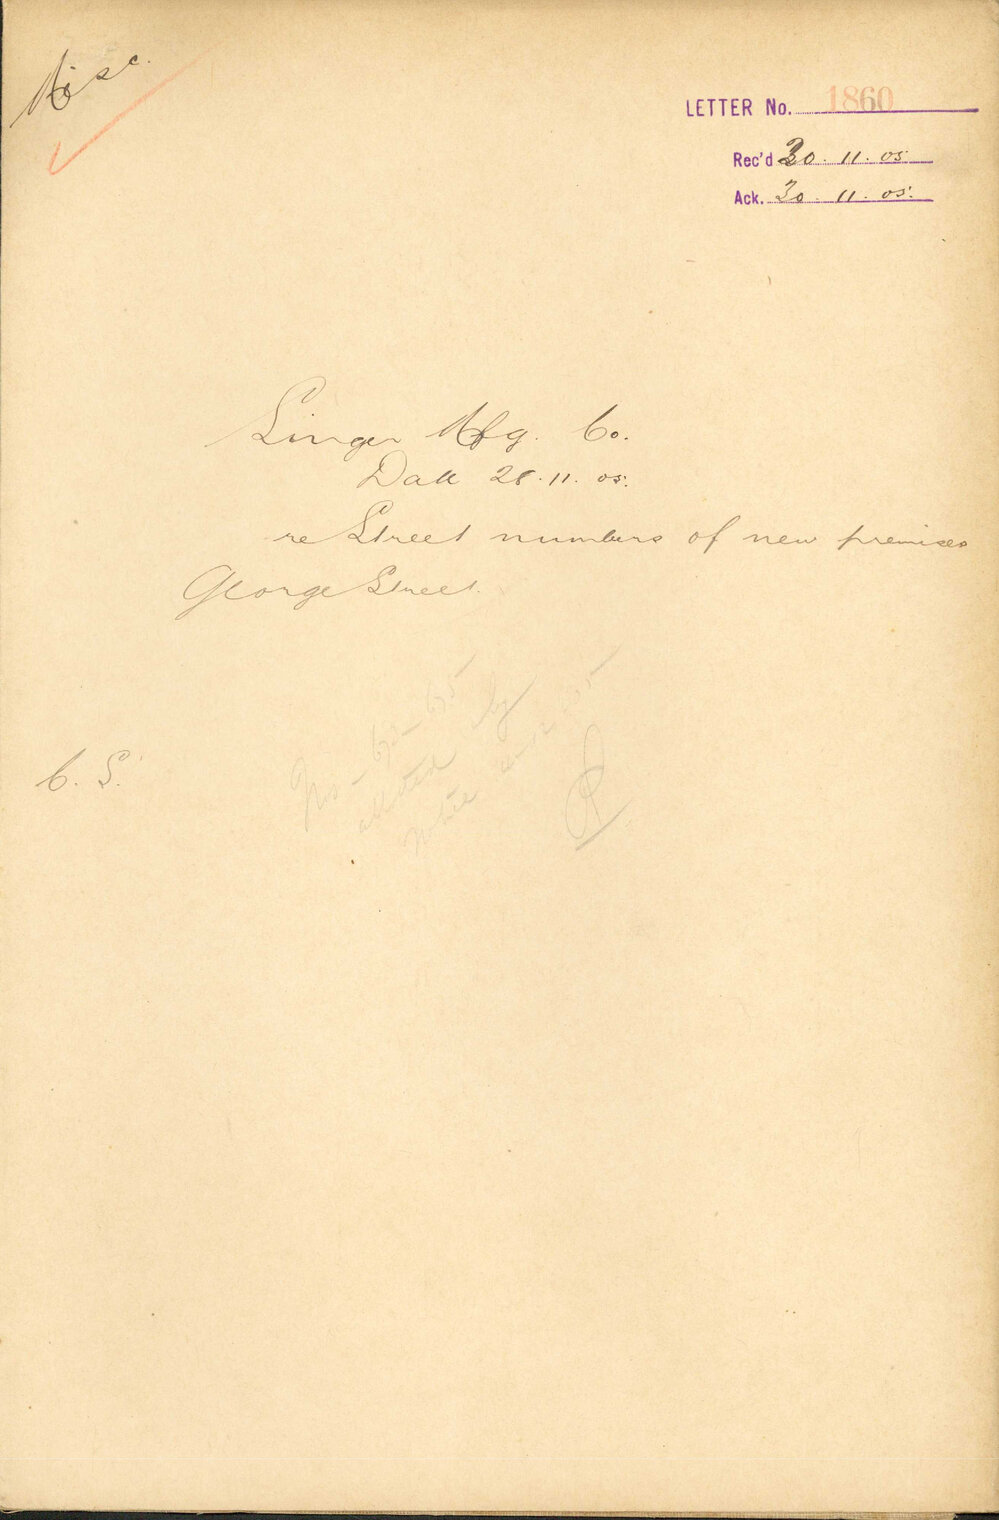 Misc.
LETTER No. 1860
Rec'd 30. 11. 05
Ack. 30. 11. 05.
Singer Mfg. Co.
Date 28.11.05.
re Street numbers of new premises
George Street.
C. S.
Nos
allotted by
notice